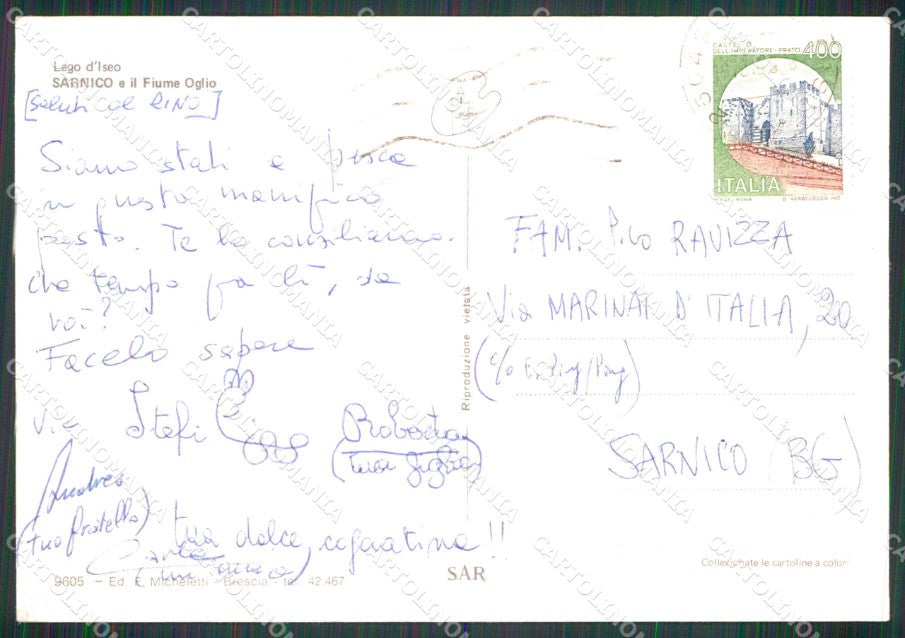 Lago d'Iseo
SARNICO e il Fiume Oglio
[Saluti col RINO]
Siamo stati a pesca
in questo magnifico
posto. Te lo consigliamo.
che tempo fa lì, da
voi?
Facelo sapere
Stefi
Roberta
(tua figlia)
Andrea
(tuo fratello)
tua dolce cognatina!!
9605 - Ed. F. Micheletti - Brescia - tel. 42.467
SAR
Riproduzione vietata
CASTELLO
DELL'IMPERATORE - PRATO 400
ITALIA
FAM. Pico RAVIZZA
Via MARINAI D'ITALIA, 20
(c/o Ping/Pong)
SARNICO (BG)
Collezionate le cartoline a colori
CARTOLINOMANIA